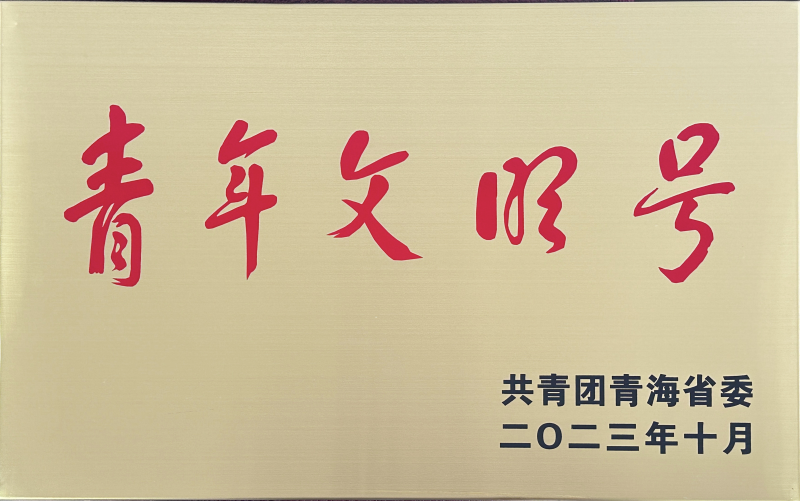 青年文明号
共青团青海省委
二〇二三年十月